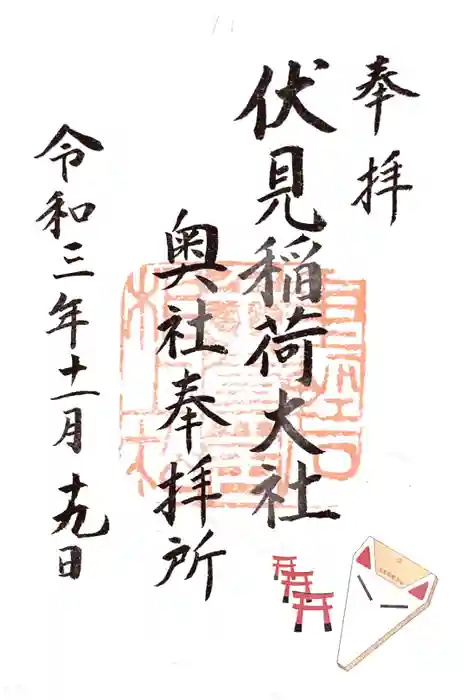 奉拝
伏見稲荷大社
奥社奉拝所
令和三年十一月十九日